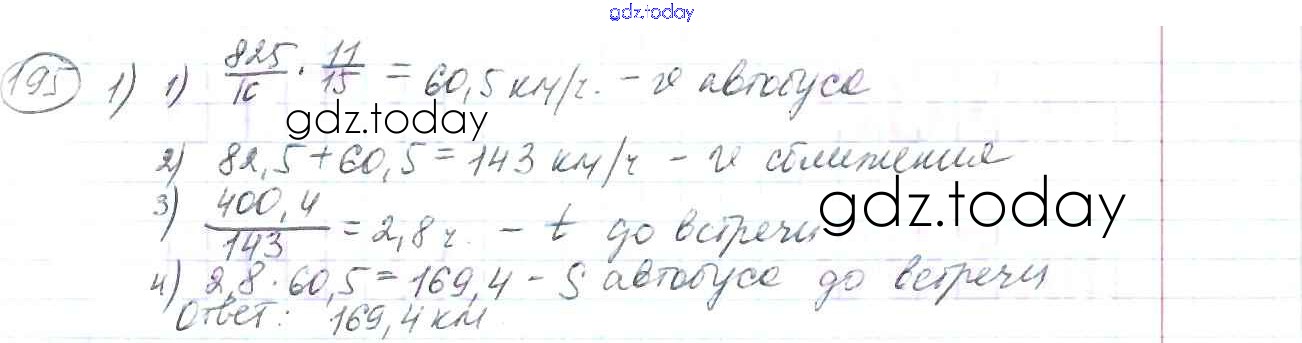 gdz.today
195 1) 1) 825/10 · 11/15 = 60,5 км/ч. - v автобуса
gdz.today
2) 82,5 + 60,5 = 143 км/ч - v сближения
3) 400,4/143 = 2,8 ч. - t до встречи
gdz.today
4) 2,8 · 60,5 = 169,4 - S автобуса до встречи
Ответ: 169,4 км